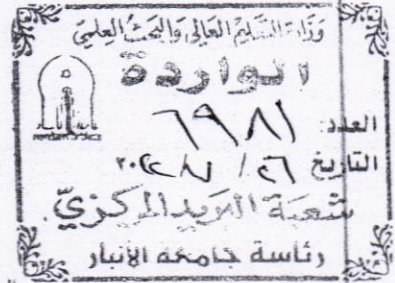 وزارة التعليم العالي والبحث العلمي
الواردة
العدد: ٦٩٨١
التاريخ ٢٦ / ٢٠٢٢
شعبة البريد المركزي
رئاسة جامعة الانبار